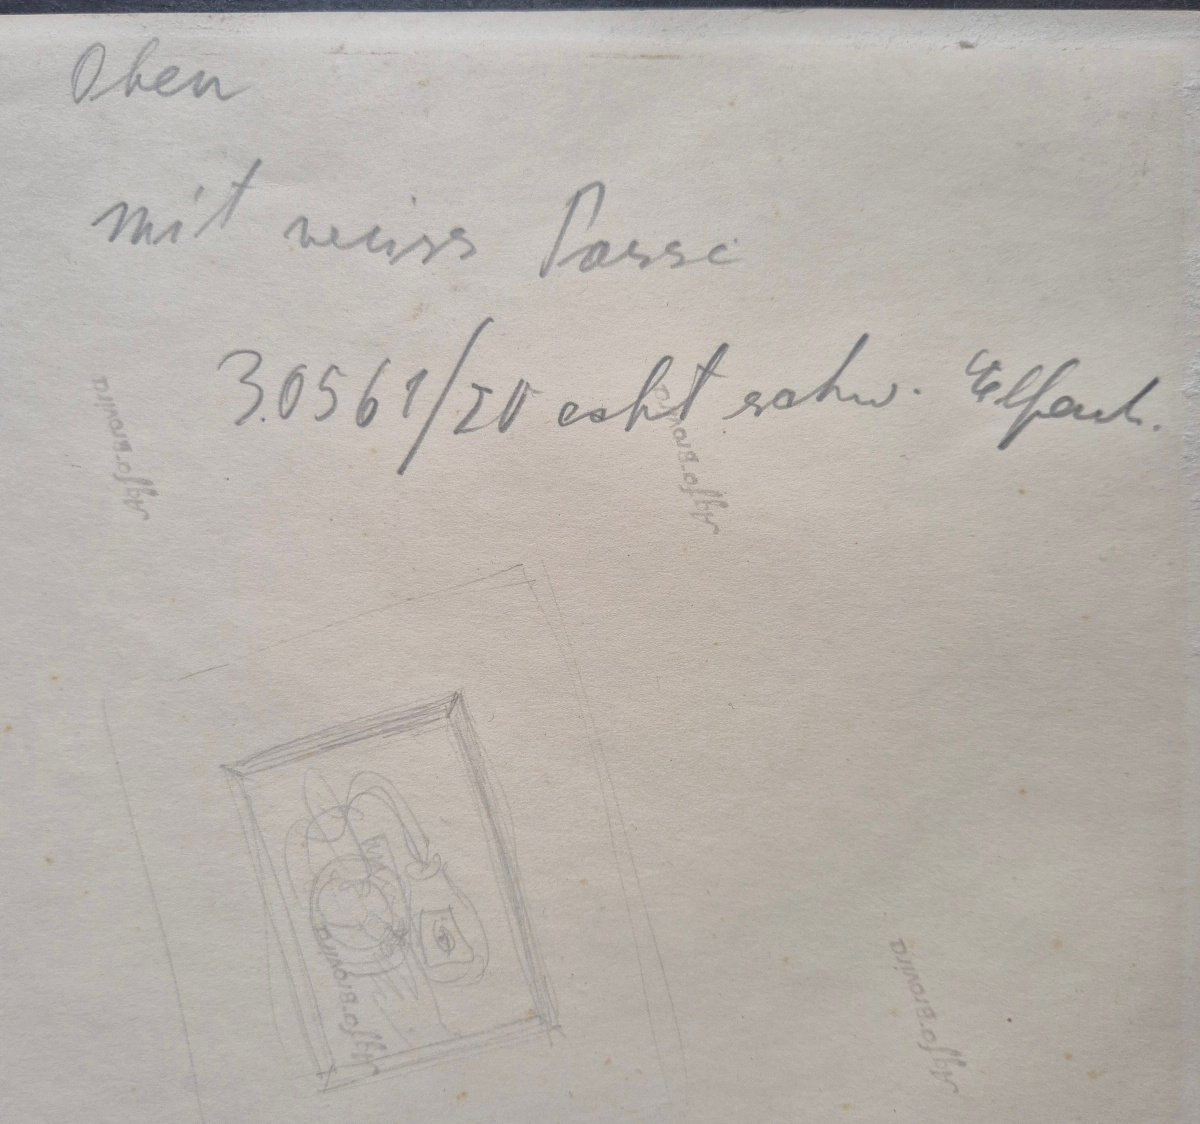 Oben
mit weiss Passe
3.0561/20 echt schw. Elfenb.
Agfa-Brovira
Agfa-Brovira
Agfa-Brovira
Agfa-Brovira